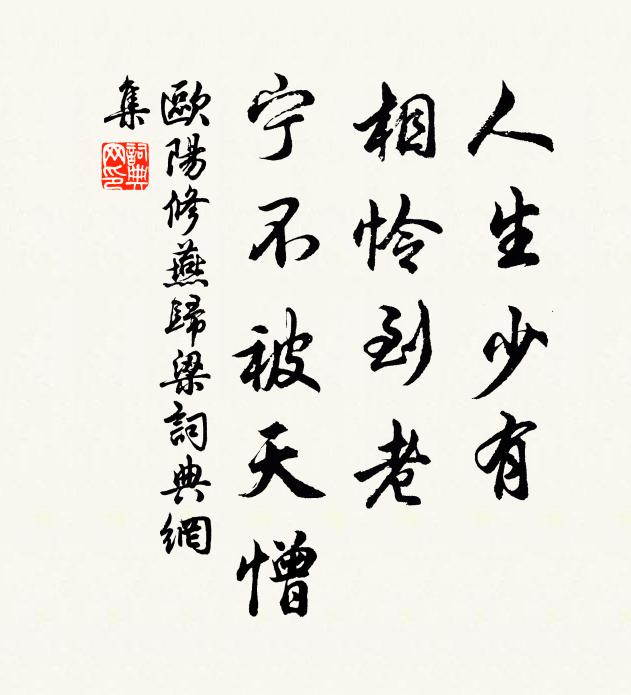 人生少有
相怜到老
宁不被天憎
歐陽修燕歸梁詞典網
集
詞典网印